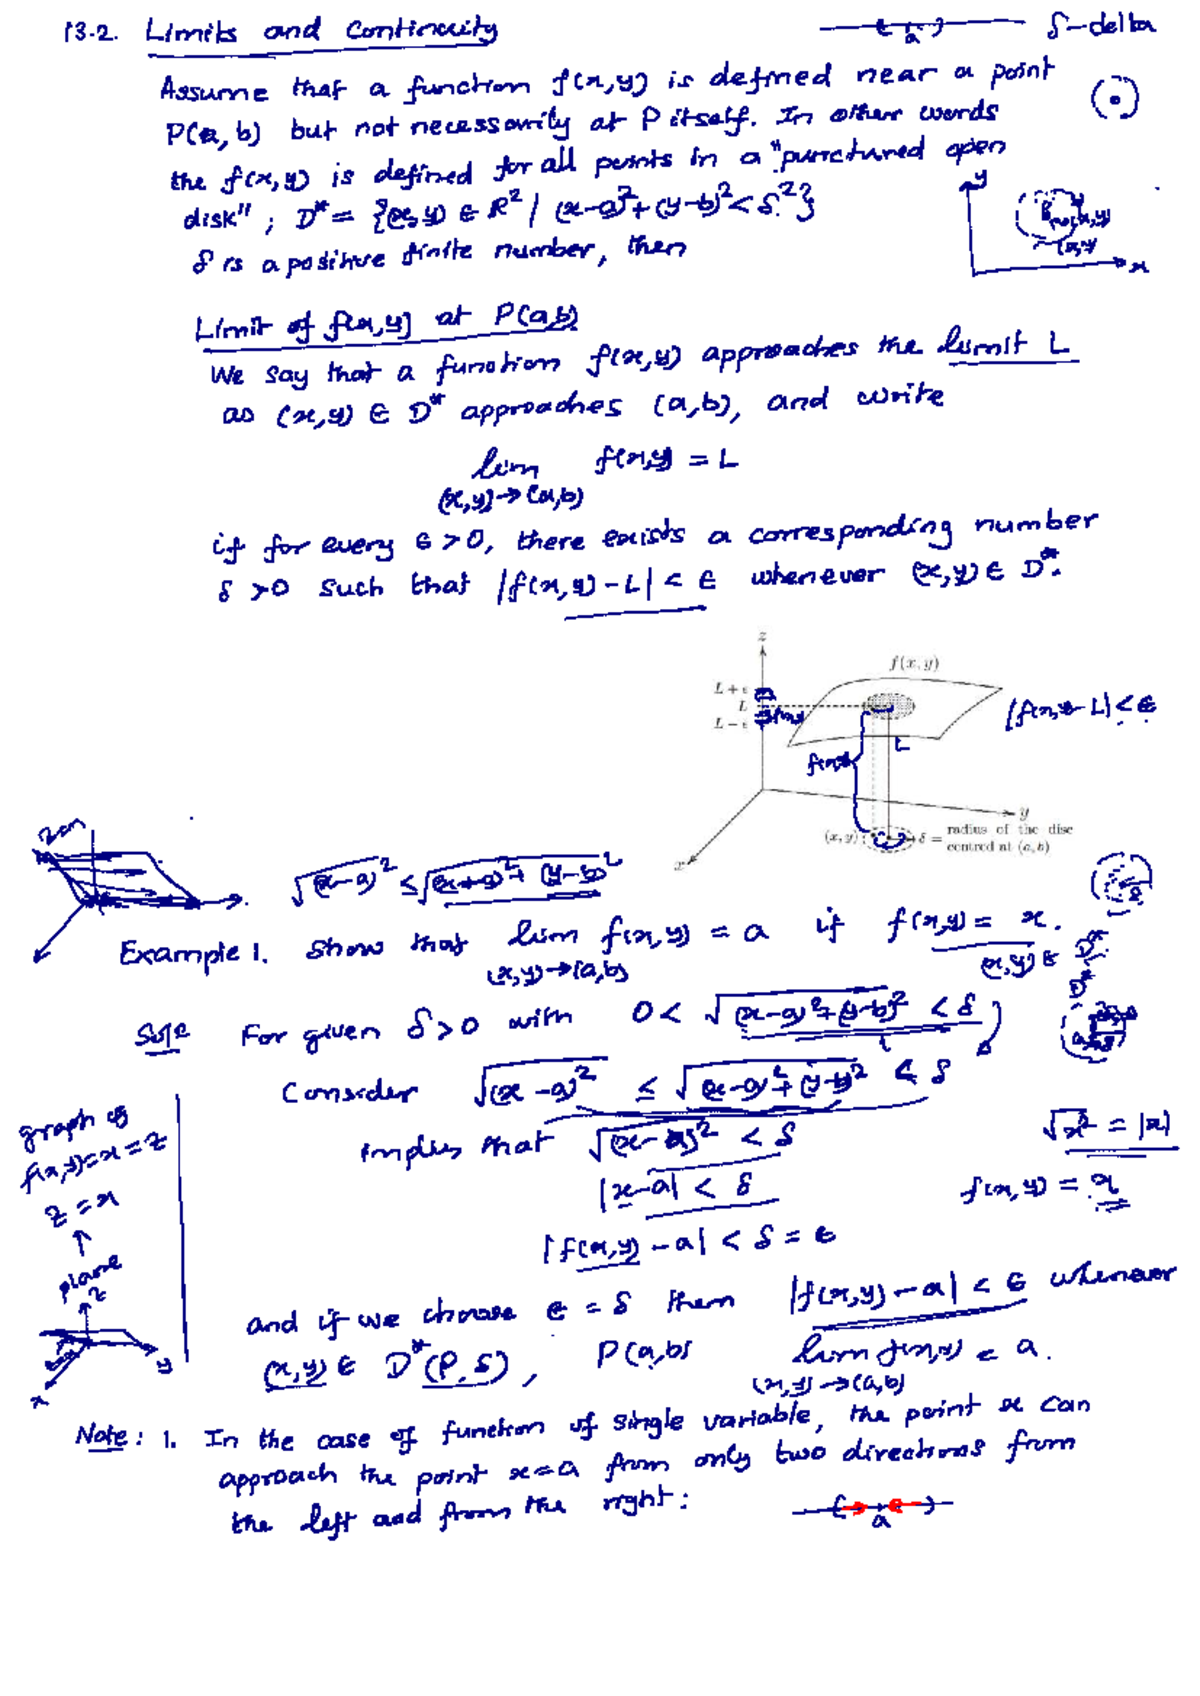 13.2. Limits and Continuity
a
δ-delta
Assume that a function f(x,y) is defined near a point
P(a, b) but not necessarily at P itself. In other words
the f(x,y) is defined for all points in a "punctured open
disk" ; D* = {(x,y) ∈ R² | (x-a)²+(y-b)² < δ²}
δ is a positive finite number, then
y
(x,y)
x
Limit of f(x,y) at P(a,b)
We say that a function f(x,y) approaches the limit L
as (x,y) ∈ D* approaches (a,b), and write
lim f(x,y) = L
(x,y)→(a,b)
if for every ε >0, there exists a corresponding number
δ >0 such that |f(x,y)-L| < ε whenever (x,y) ∈ D*.
z
f(x, y)
L + ε
L
L − ε
|f(x,y)-L| < ε
L
y
(x, y)
δ = radius of the disc
centred at (a, b)
x
√(x-a)² ≤ √(x-a)²+(y-b)²
Example 1. Show that lim f(x,y) = a if f(x,y) = x.
(x,y)→(a,b)
(x,y) ∈ D*
D*
Soln For given δ>0 with 0 < √(x-a)²+(y-b)² < δ
Consider √(x-a)² ≤ √(x-a)²+(y-b)² < δ
implies that √(x-a)² < δ
√x² = |x|
|x-a| < δ
f(x,y) = x
|f(x,y) - a| < δ = ε
graph of
f(x,y)=x=z
z = x
↑
plane
z
y
x
and if we choose ε = δ then |f(x,y)-a| < ε whenever
(x,y) ∈ D*(P,δ), P(a,b) lim f(x,y) = a.
(x,y)→(a,b)
Note: 1. In the case of function of single variable, the point x can
approach the point x=a from only two directions from
the left and from the right:
a